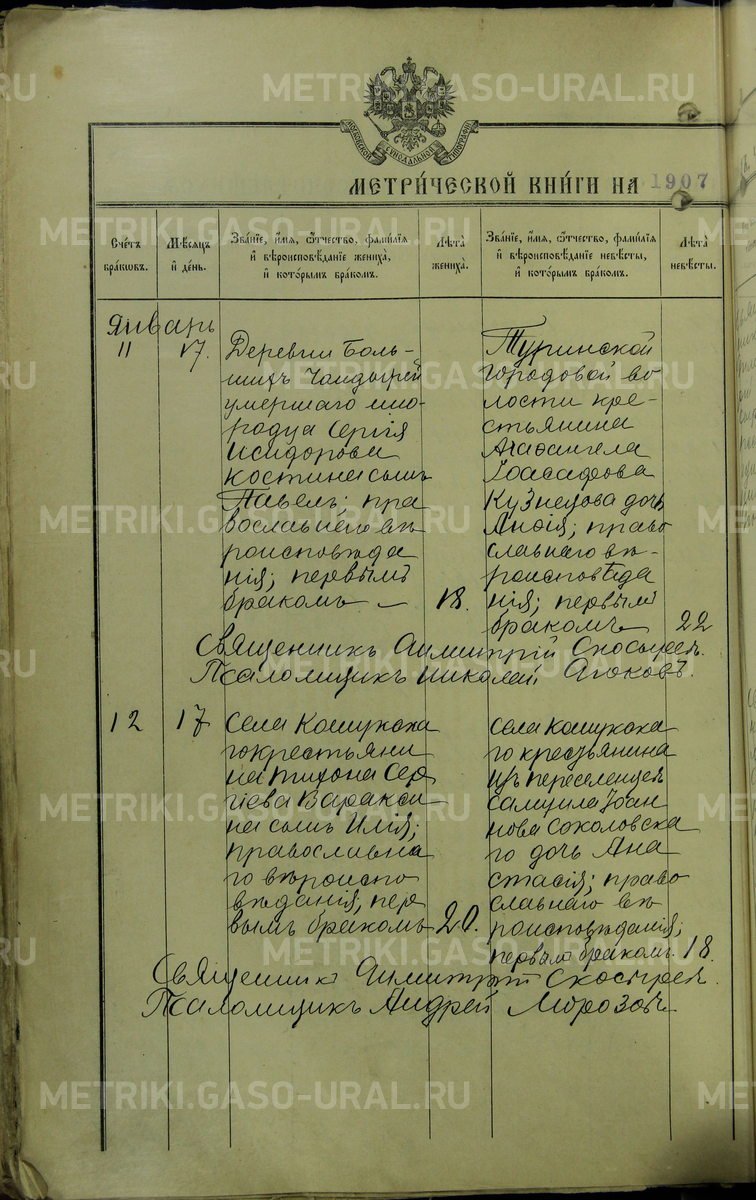 METRIKI.GASO-URAL.RU
МОСКОВСКОЙ СѴНОДАЛЬНОЙ ТИПОГРАФІИ
МЕТРИ́ЧЕСКОЙ КНИ́ГИ НА 1907
Сче́тъ бра́кѡвъ.
Мѣ́сѧцъ и҆ де́нь.
Зва́нїе, и҆́мѧ, ѻ҆́тчество, фами́лїѧ и҆ вѣроисповѣ́данїе жениха̀, и҆ кото́рымъ бра́комъ.
Лѣ̑та жениха̀.
Зва́нїе, и҆́мѧ, ѻ҆́тчество, фами́лїѧ и҆ вѣроисповѣ́данїе невѣ́сты, и҆ кото́рымъ бра́комъ.
Лѣ̑та невѣ́сты.
Январь
11
17.
Деревни Боль-
шихъ Чандырей
умершаго ино-
родца Сергія
Исидорова
Костина сынъ
Павелъ; пра
вославнаго вѣ
роисповѣда
нія; первымъ
бракомъ
18.
Туринской
городовой во
лости кре-
стьянина
Агаѳангела
Іоасафова
Кузнецова дочь
Анѳія; право
славнаго вѣ-
роисповѣда
нія; первымъ
бракомъ
22
Священникъ Димитрій Скосыревъ.
Псаломщикъ Николай
12
17
Села Кошукска
го крестьяни
на Тихона Сер
гіеваВаракси
на сынъ Илія;
православна
го вѣроиспо
вѣданія; пер
вымъ бракомъ
20.
Села Кошукска
го крестьянина
изъ переселенцевъ
Самуила Іоан
нова Соколовска
го дочь Ана
стасія; право
славнаго вѣ
роисповѣданія;
первымъ бракомъ.
18.
Священникъ Димитрій Скосыревъ.
Псаломщикъ Андрей Морозовъ